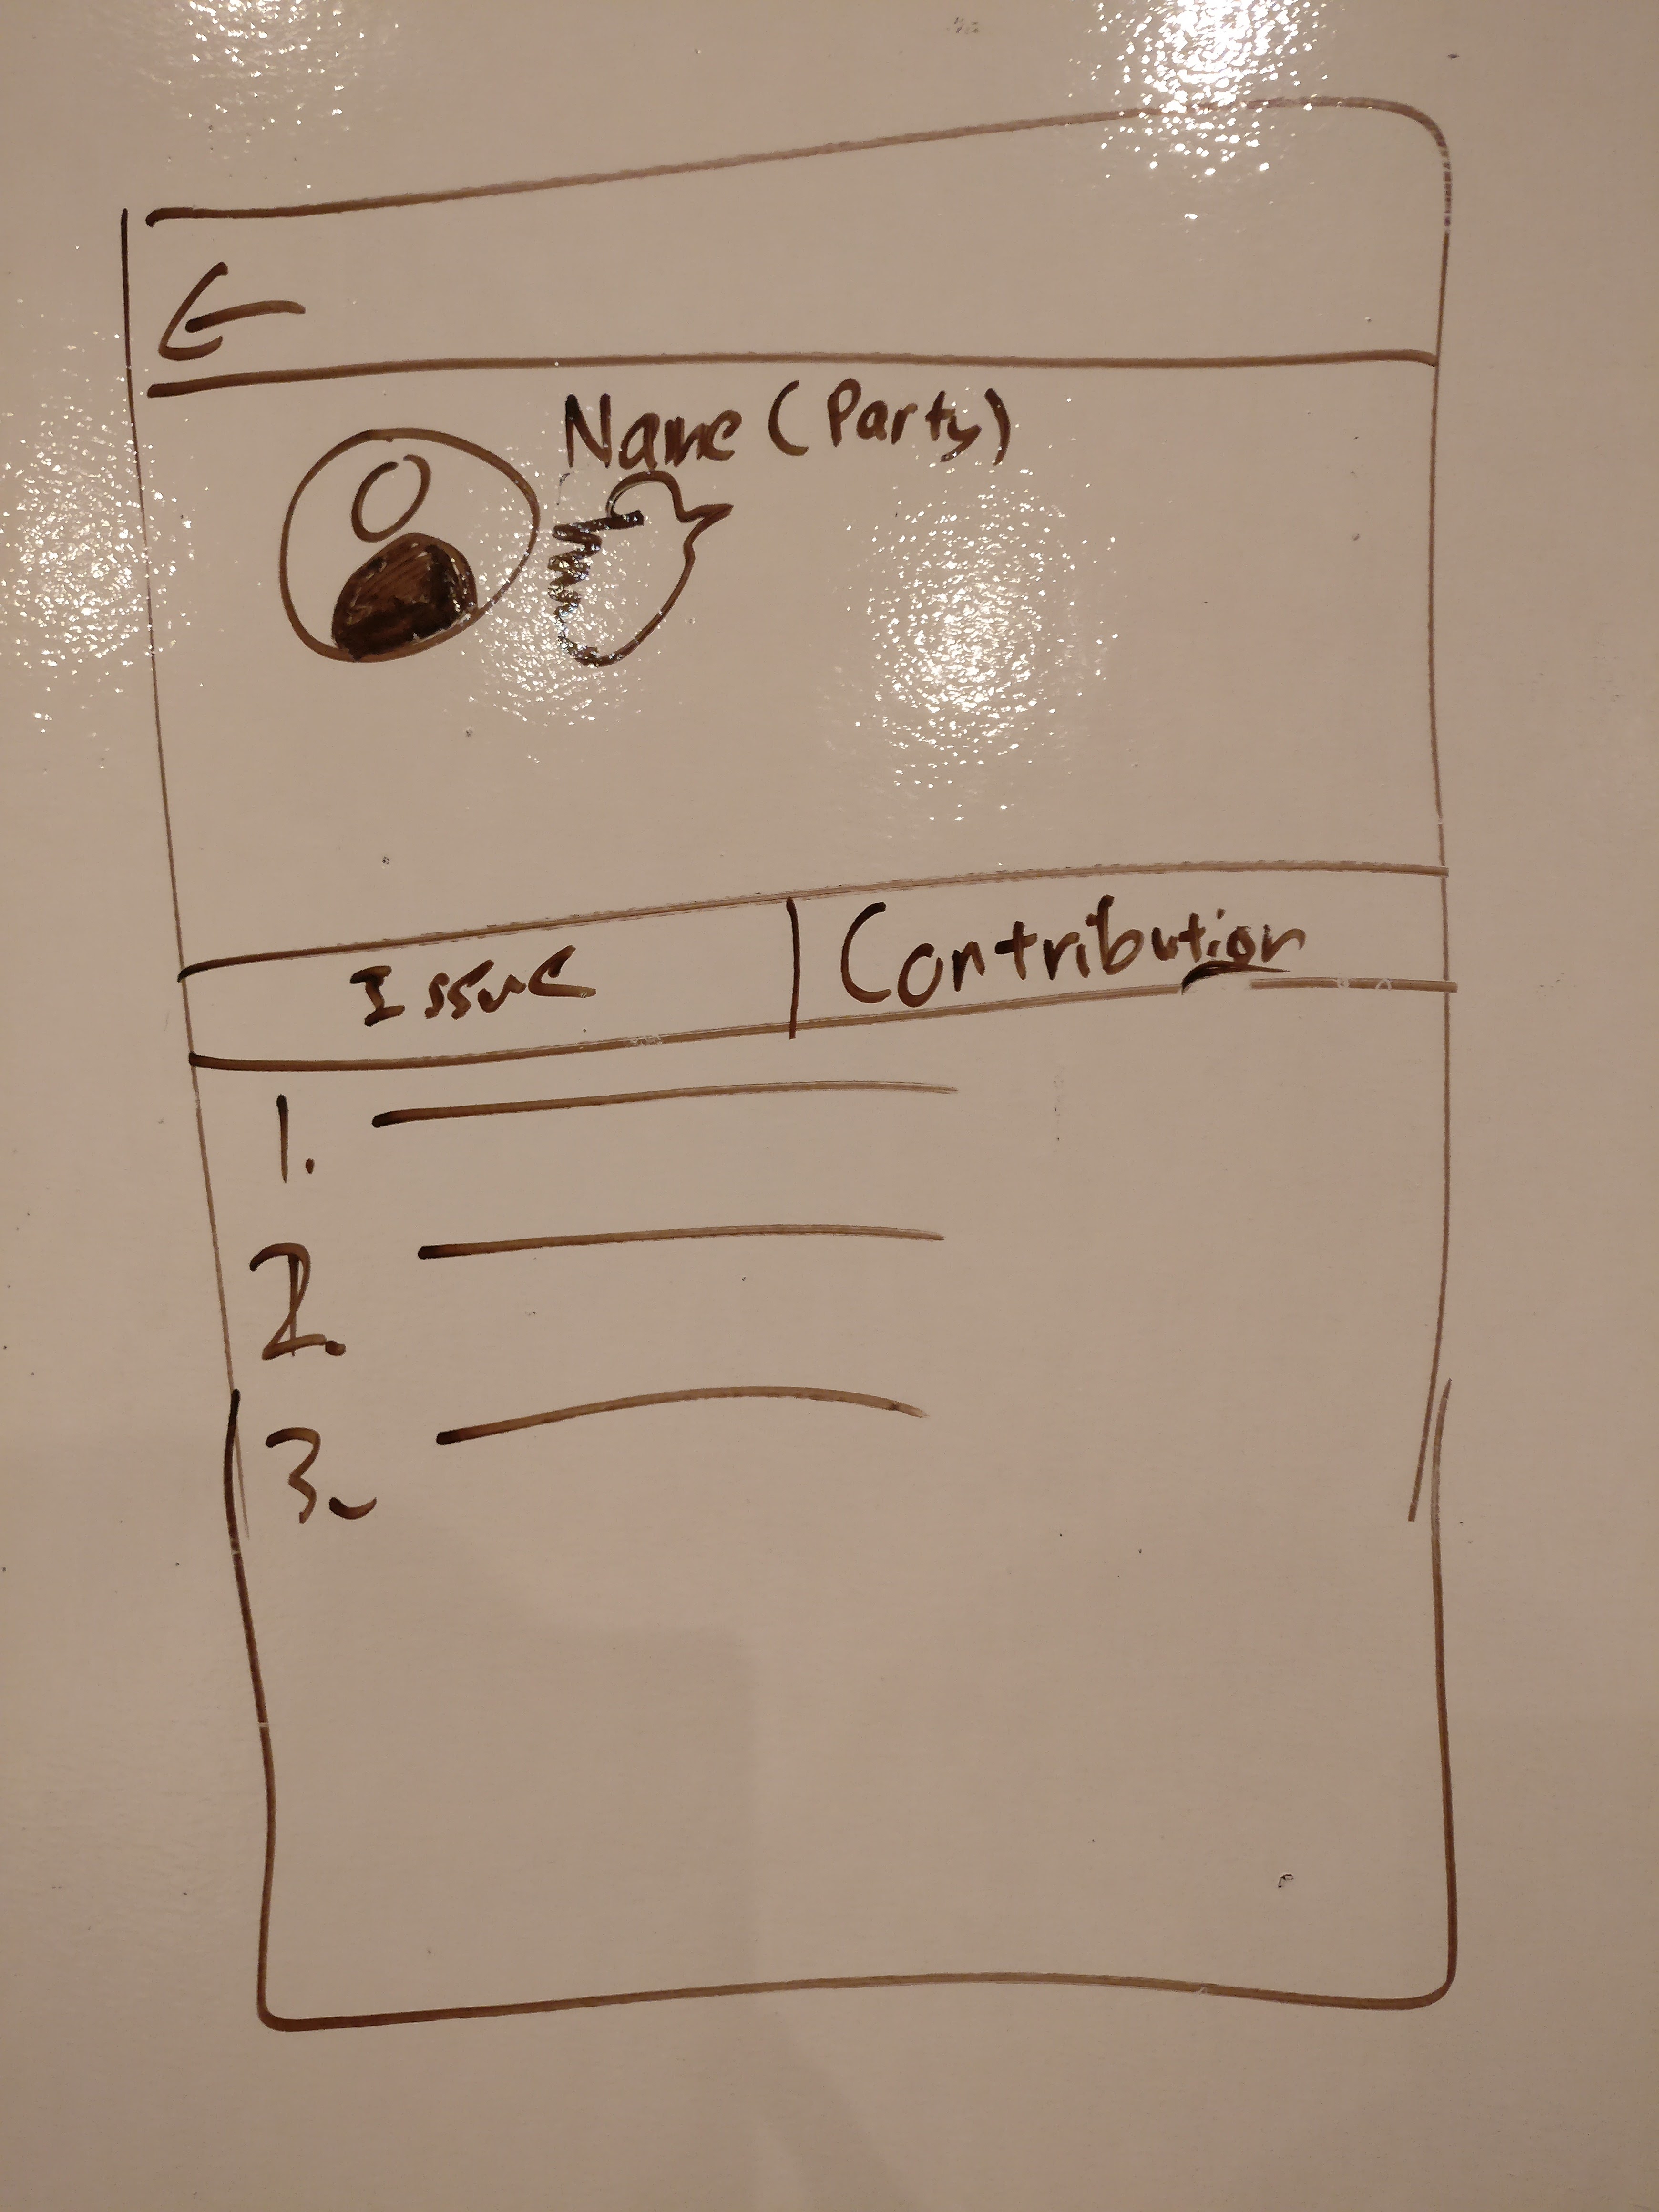 Name (Party)
Issue
Contribution
1.
2.
3.